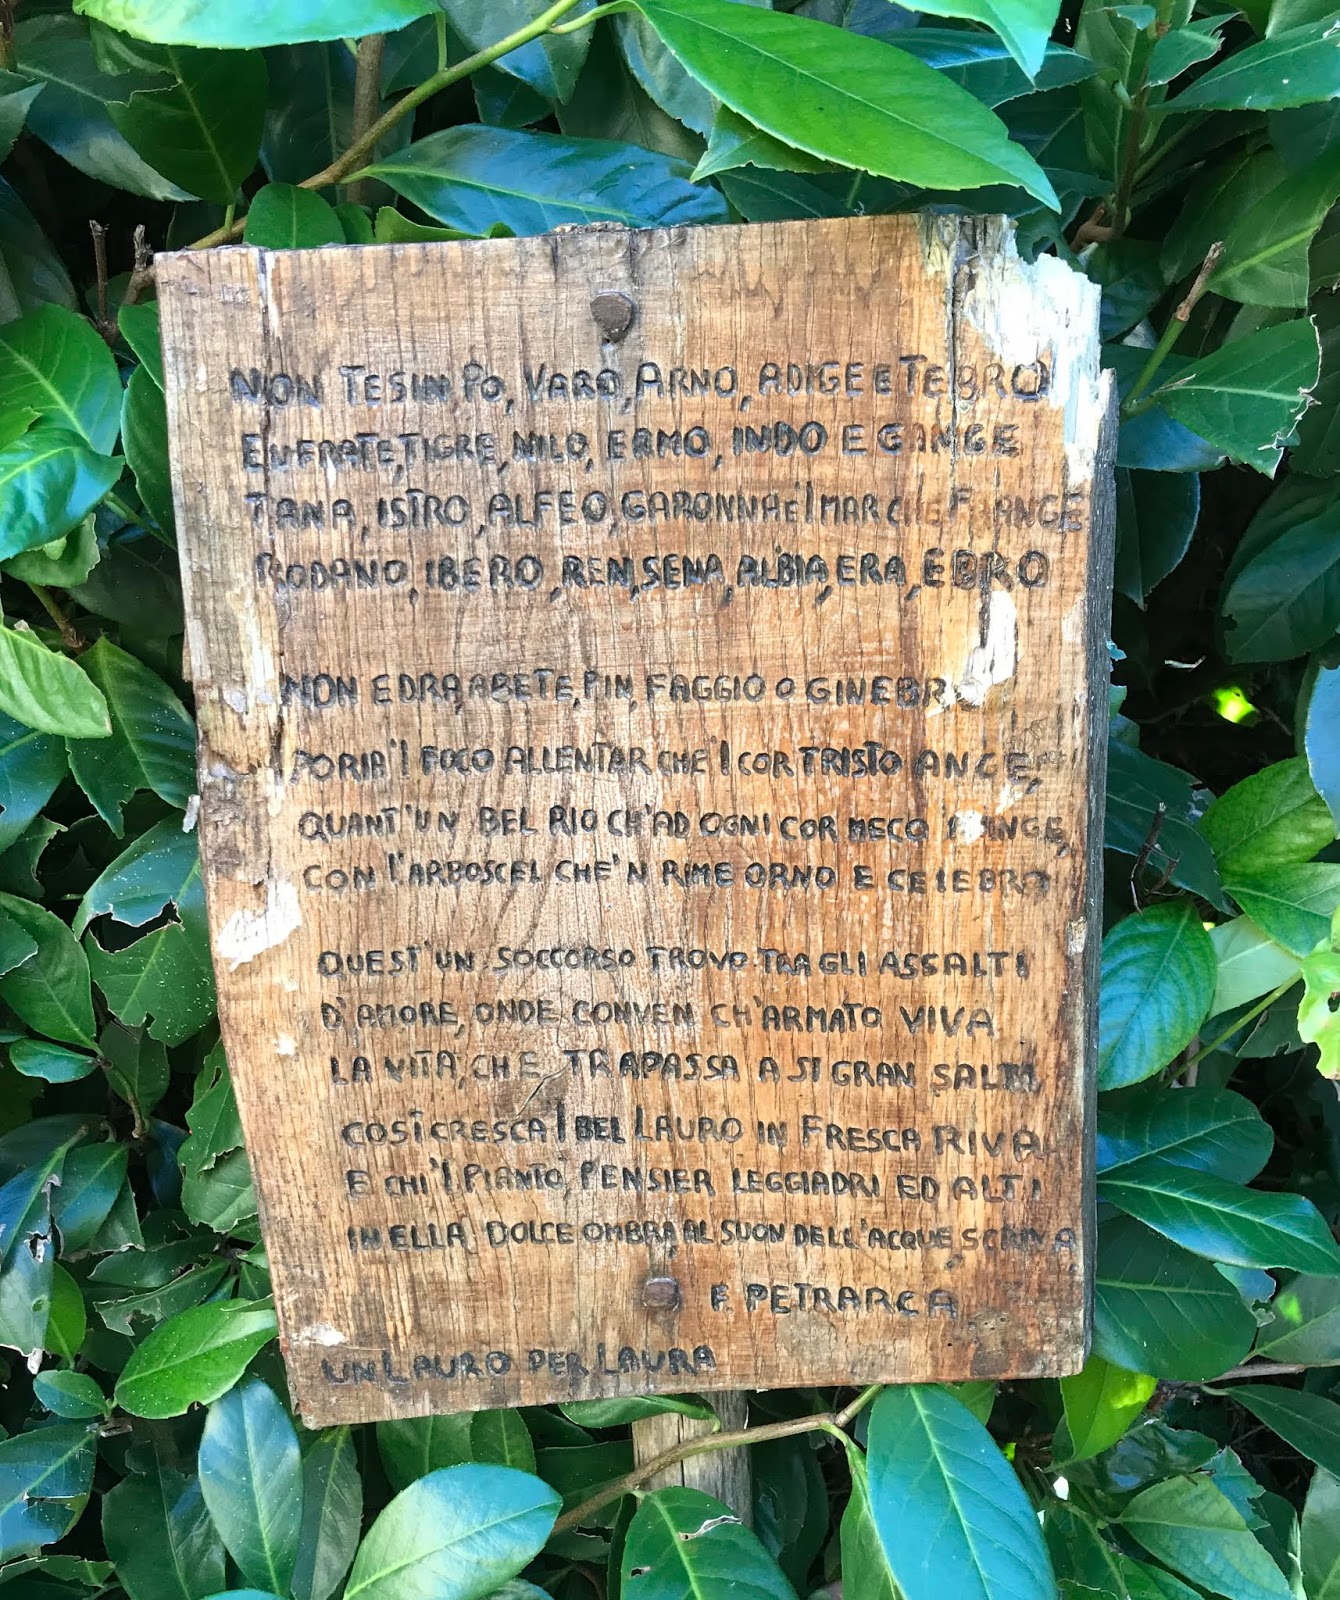 NON TESIN, PO, VARO, ARNO, ADIGE E TEBRO
EUFRATE, TIGRE, NILO, ERMO, INDO E GANGE
TANA, ISTRO, ALFEO, GARONNA E'L MAR CHE FRANGE
RODANO, IBERO, REN, SENA, ALBIA, ERA, EBRO
NON EDRA, ABETE, PIN, FAGGIO O GINEBR
PORIA'L FOCO ALLENTAR CHE'L COR TRISTO ANGE,
QUANT'UN BEL RIO CH'AD OGNI COR MECO
CON L'ARBOSCEL CHE'N RIME ORNO E CELEBRO
QUEST'UN SOCCORSO TROVO TRA GLI ASSALTI
D'AMORE, ONDE CONVEN CH'ARMATO VIVA
LA VITA, CHE TRAPASSA A SI GRAN SALTI
COSÌ CRESCA'L BEL LAURO IN FRESCA RIVA
E CHI'L PIANTÒ, PENSIER LEGGIADRI ED ALTI
IN ELLA DOLCE OMBRA, AL SUON DELL'ACQUE, SCRIVA
F. PETRARCA
UN LAURO PER LAURA